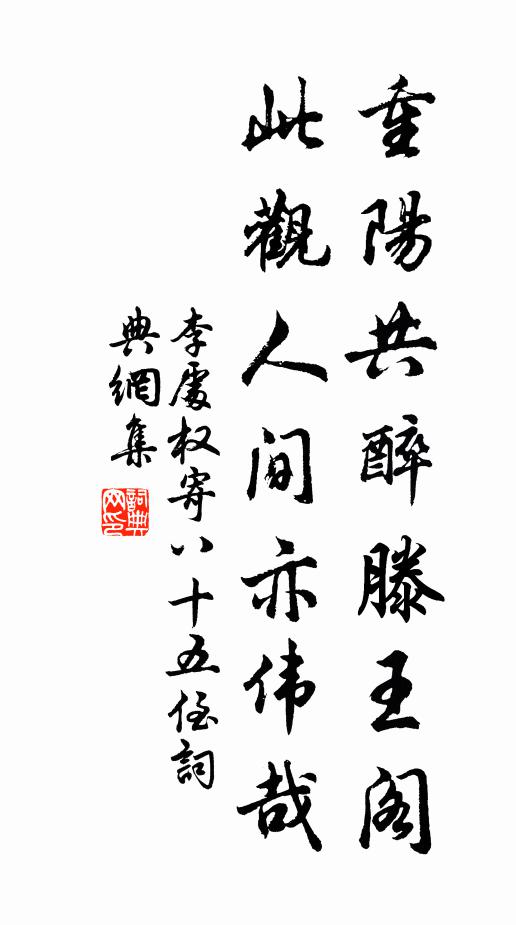 重陽共醉滕王阁
此觀人间亦伟哉
李處权寄八十五侄詞
典網集
詞典
网印